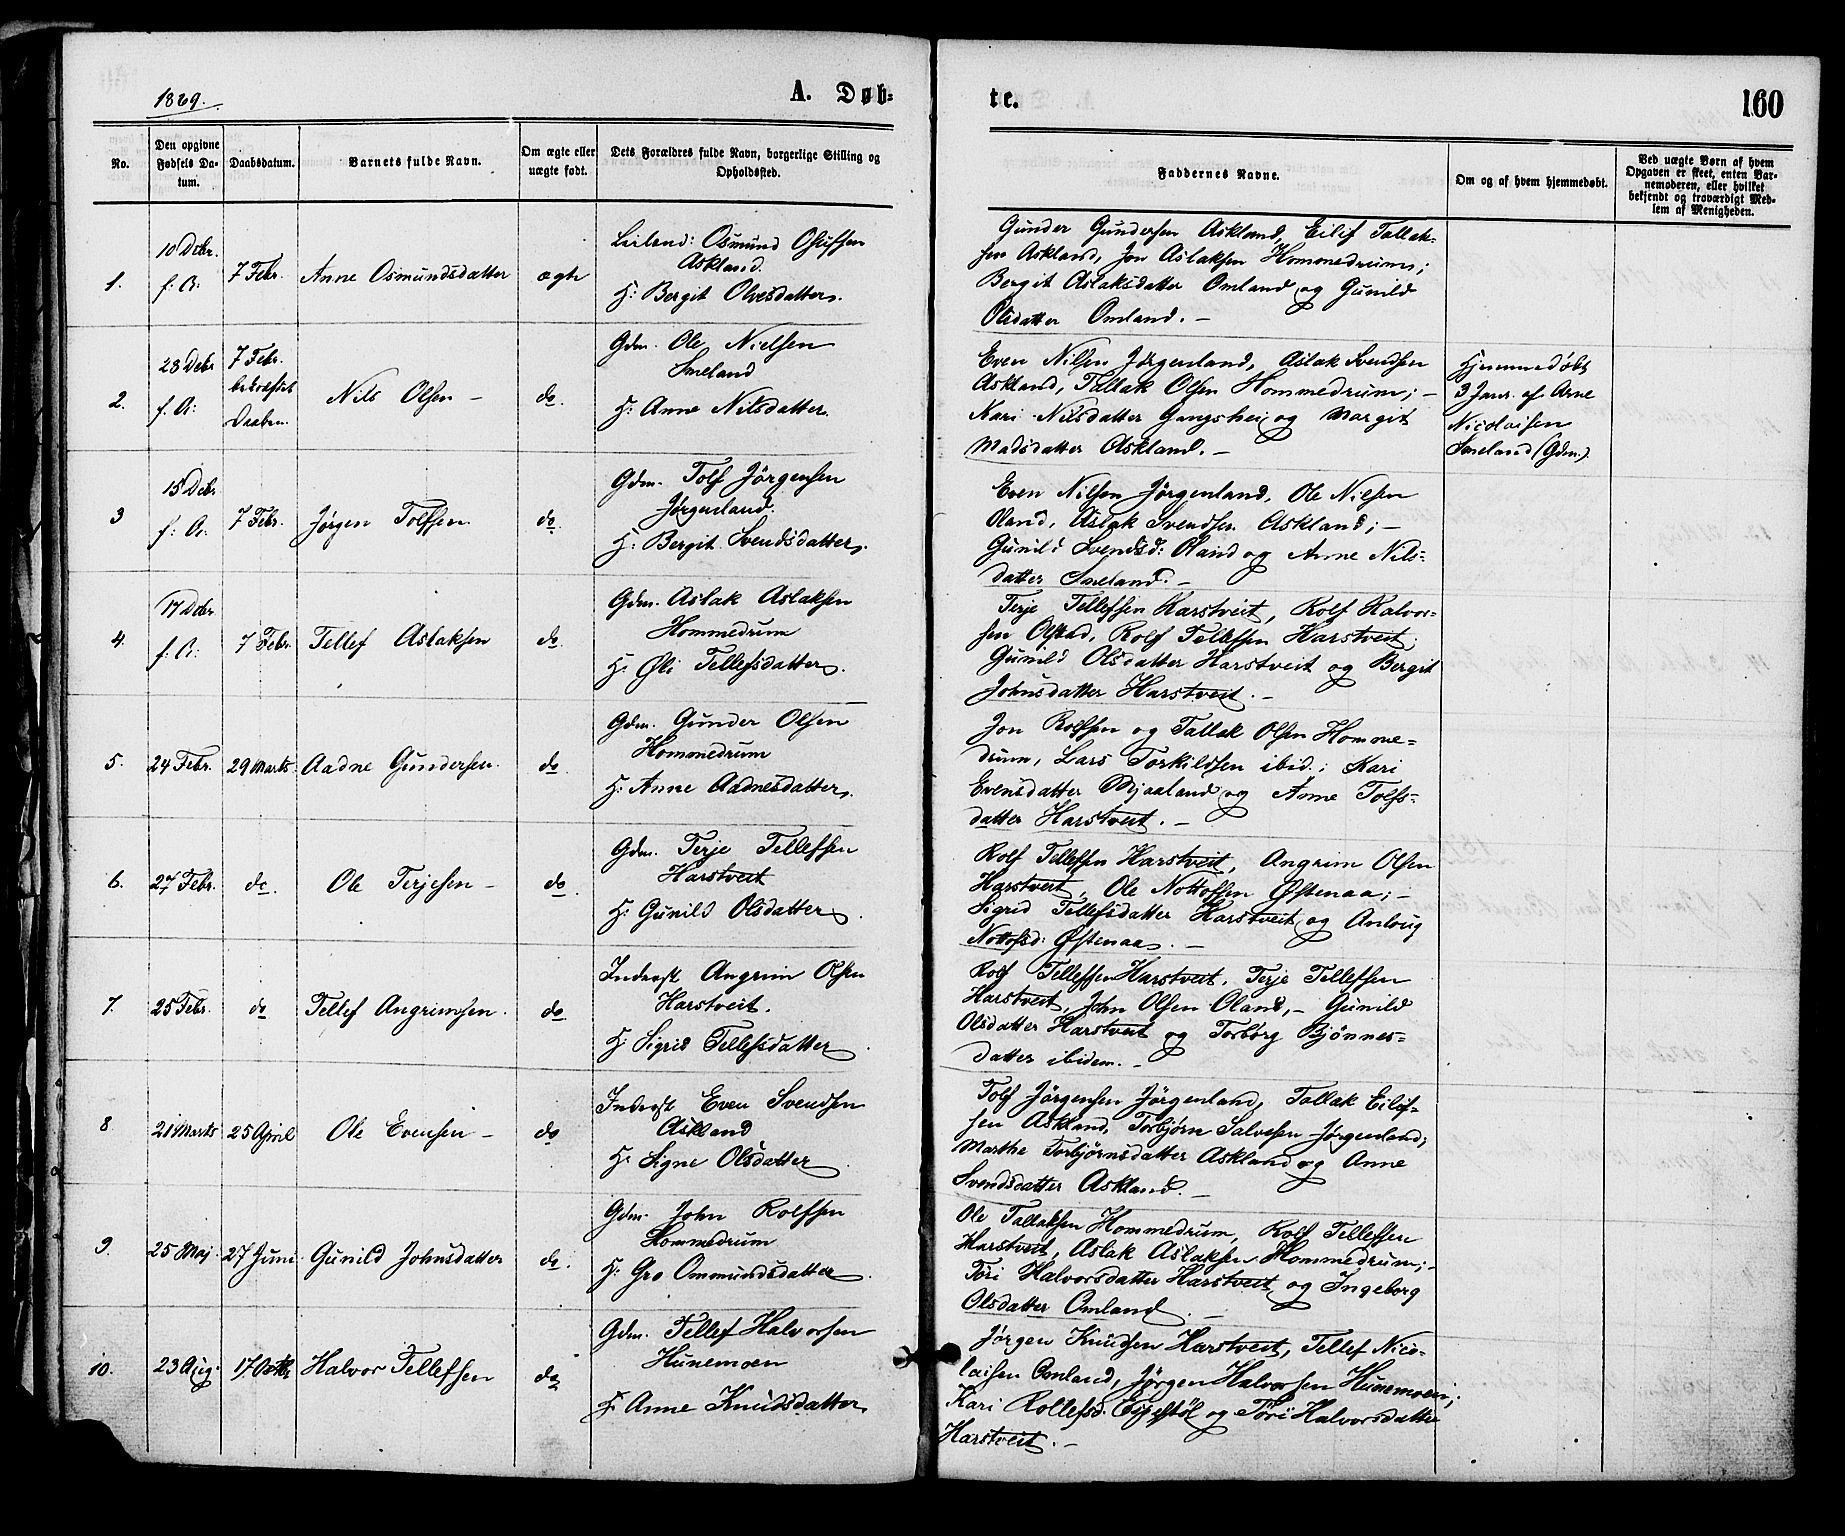 1869.
A. Døb-
te.
160
No.
Den opgivne Fødsels Da-tum.
Daabsdatum.
Barnets fulde Navn.
Om ægte eller uægte født.
Dets Forældres fulde Navn, borgerlige Stilling og Opholdssted.
Faddernes Navne.
Om og af hvem hjemmedøbt.
Ved uægte Børn af hvem Opgaven er skeet, enten Bar-nemoderen, eller hvilket bekjendt og troværdigt Med-lem af Menigheden.
1.
10 Debr.
f. A.
7 Febr.
Anne Osmundsdatter
ægte
Leilend: Osmund
Askland.
H: Bergit Olvesdatter.
Gunder Gundersen Askland, Eilif Tallak-
sen Askland, Jon Aslaksen Hommedrum;
Bergit Aslaksdatter Omland og Gunild
Olsdatter Omland. –
2.
28 Debr
f. A:
7 Febr.
bekræftet
Daaben.
Nils Olsen –
do.
Gdm. Ole Nielsen
Smeland
H: Anne Nilsdatter.
Even Nilsen Jørgenland, Aslak Svendsen
Askland, Tallak Olsen Hommedrum; –
Kari Nilsdatter Gangshei og Margit
Madsdatter Askland. –
Hjemmedøbt
3 Janr. af Arne
Nicolaisen
Smeland (Gdm.)
3
15 Debr
f: A:
7 Febr.
Jørgen Tolfsen
do.
Gdm. Tolf Jørgensen
Jørgenland.
H: Bergit Svendsdatter.
Even Nilsen Jørgenland, Ole Nilsen
Oland, Aslak Svendsen Askland; –
Gunild Svendsd: Oland og Anne Nils-
datter Smeland. –
4.
17 Debr
f. A:
7 Febr.
Tellef Aslaksen
do.
Gdm. Aslak Aslaksen
Hommedrum
H: Øli Tellefsdatter.
Terje Tellefsen Harstveit, Rolf Halvor-
sen Olstad, Rolf Tellefsen Harstveit;
Gunild Olsdatter Harstveit og Bergit
Johnsdatter Harstveit. –
5.
24 Febr.
29 Marts
Aadne Gundersen.
do.
Gdm. Gunder Olsen
Hommedrum
H: Anne Aadnesdatter.
Jon Rolfsen og Tallak Olsen Homme-
drum, Lars Torkildsen ibid.; Kari
Evensdatter Mjaaland og Anne Tolfs-
datter Harstveit. –
6.
27 Febr.
do.
Ole Terjesen –
do.
Gdm. Terje Tellefsen
Harstveit
H: Gunild Olsdatter.
Rolf Tellefsen Harstveit, Angrim Olsen
Harstveit, Ole Nottofsen Østenaa; –
Sigrid Tellefsdatter Harstveit og Anlaug
Nottofsd: Østenaa. –
7.
25 Febr.
do
Tellef Angrimsen.
do.
Inderst Angrim Olsen
Harstveit.
H: Sigrid Tellefsdatter.
Rolf Tellefsen Harstveit, Terje Tellefsen
Harstveit, John Olsen Oland, – Gunild
Olsdatter Harstveit og Torborg Bjønnes-
datter ibidem. –
8
21 Marts
25 April
Ole Evensen –
do
Inderst Even Svendsen
Askland
H: Signe Olsdatter.
Tolf Jørgensen Jørgenland, Tallak Eilif-
sen Askland, Torbjørn Salvesen Jørgenland;
Marthe Torbjørnsdatter Askland og Anne
Svendsdatter Askland. –
9.
25 Maj
27 Juni
Gunild Johnsdatter
do.
Gdm. John Rolfsen
Hommedrum
H: Gro Ommundsdatter.
Ole Tallaksen Hommedrum, Rolf Tellefsen
Harstveit, Aslak Aslaksen Hommedrum; –
Tori Halvorsdatter Harstveit og Ingeborg
Olsdatter Omland. –
10.
23 Aug.
17 Octbr
Halvor Tellefsen
do
Gdm. Tellef Halvorsen
Hunemoen
H: Anne Knudsdatter.
Jørgen Knudsen Harstveit, Tellef Nico-
laisen Omland, Jørgen Halvorsen Hunemoen;
Kari Rollefsd. og Tori Halvorsdatter
Harstveit. –